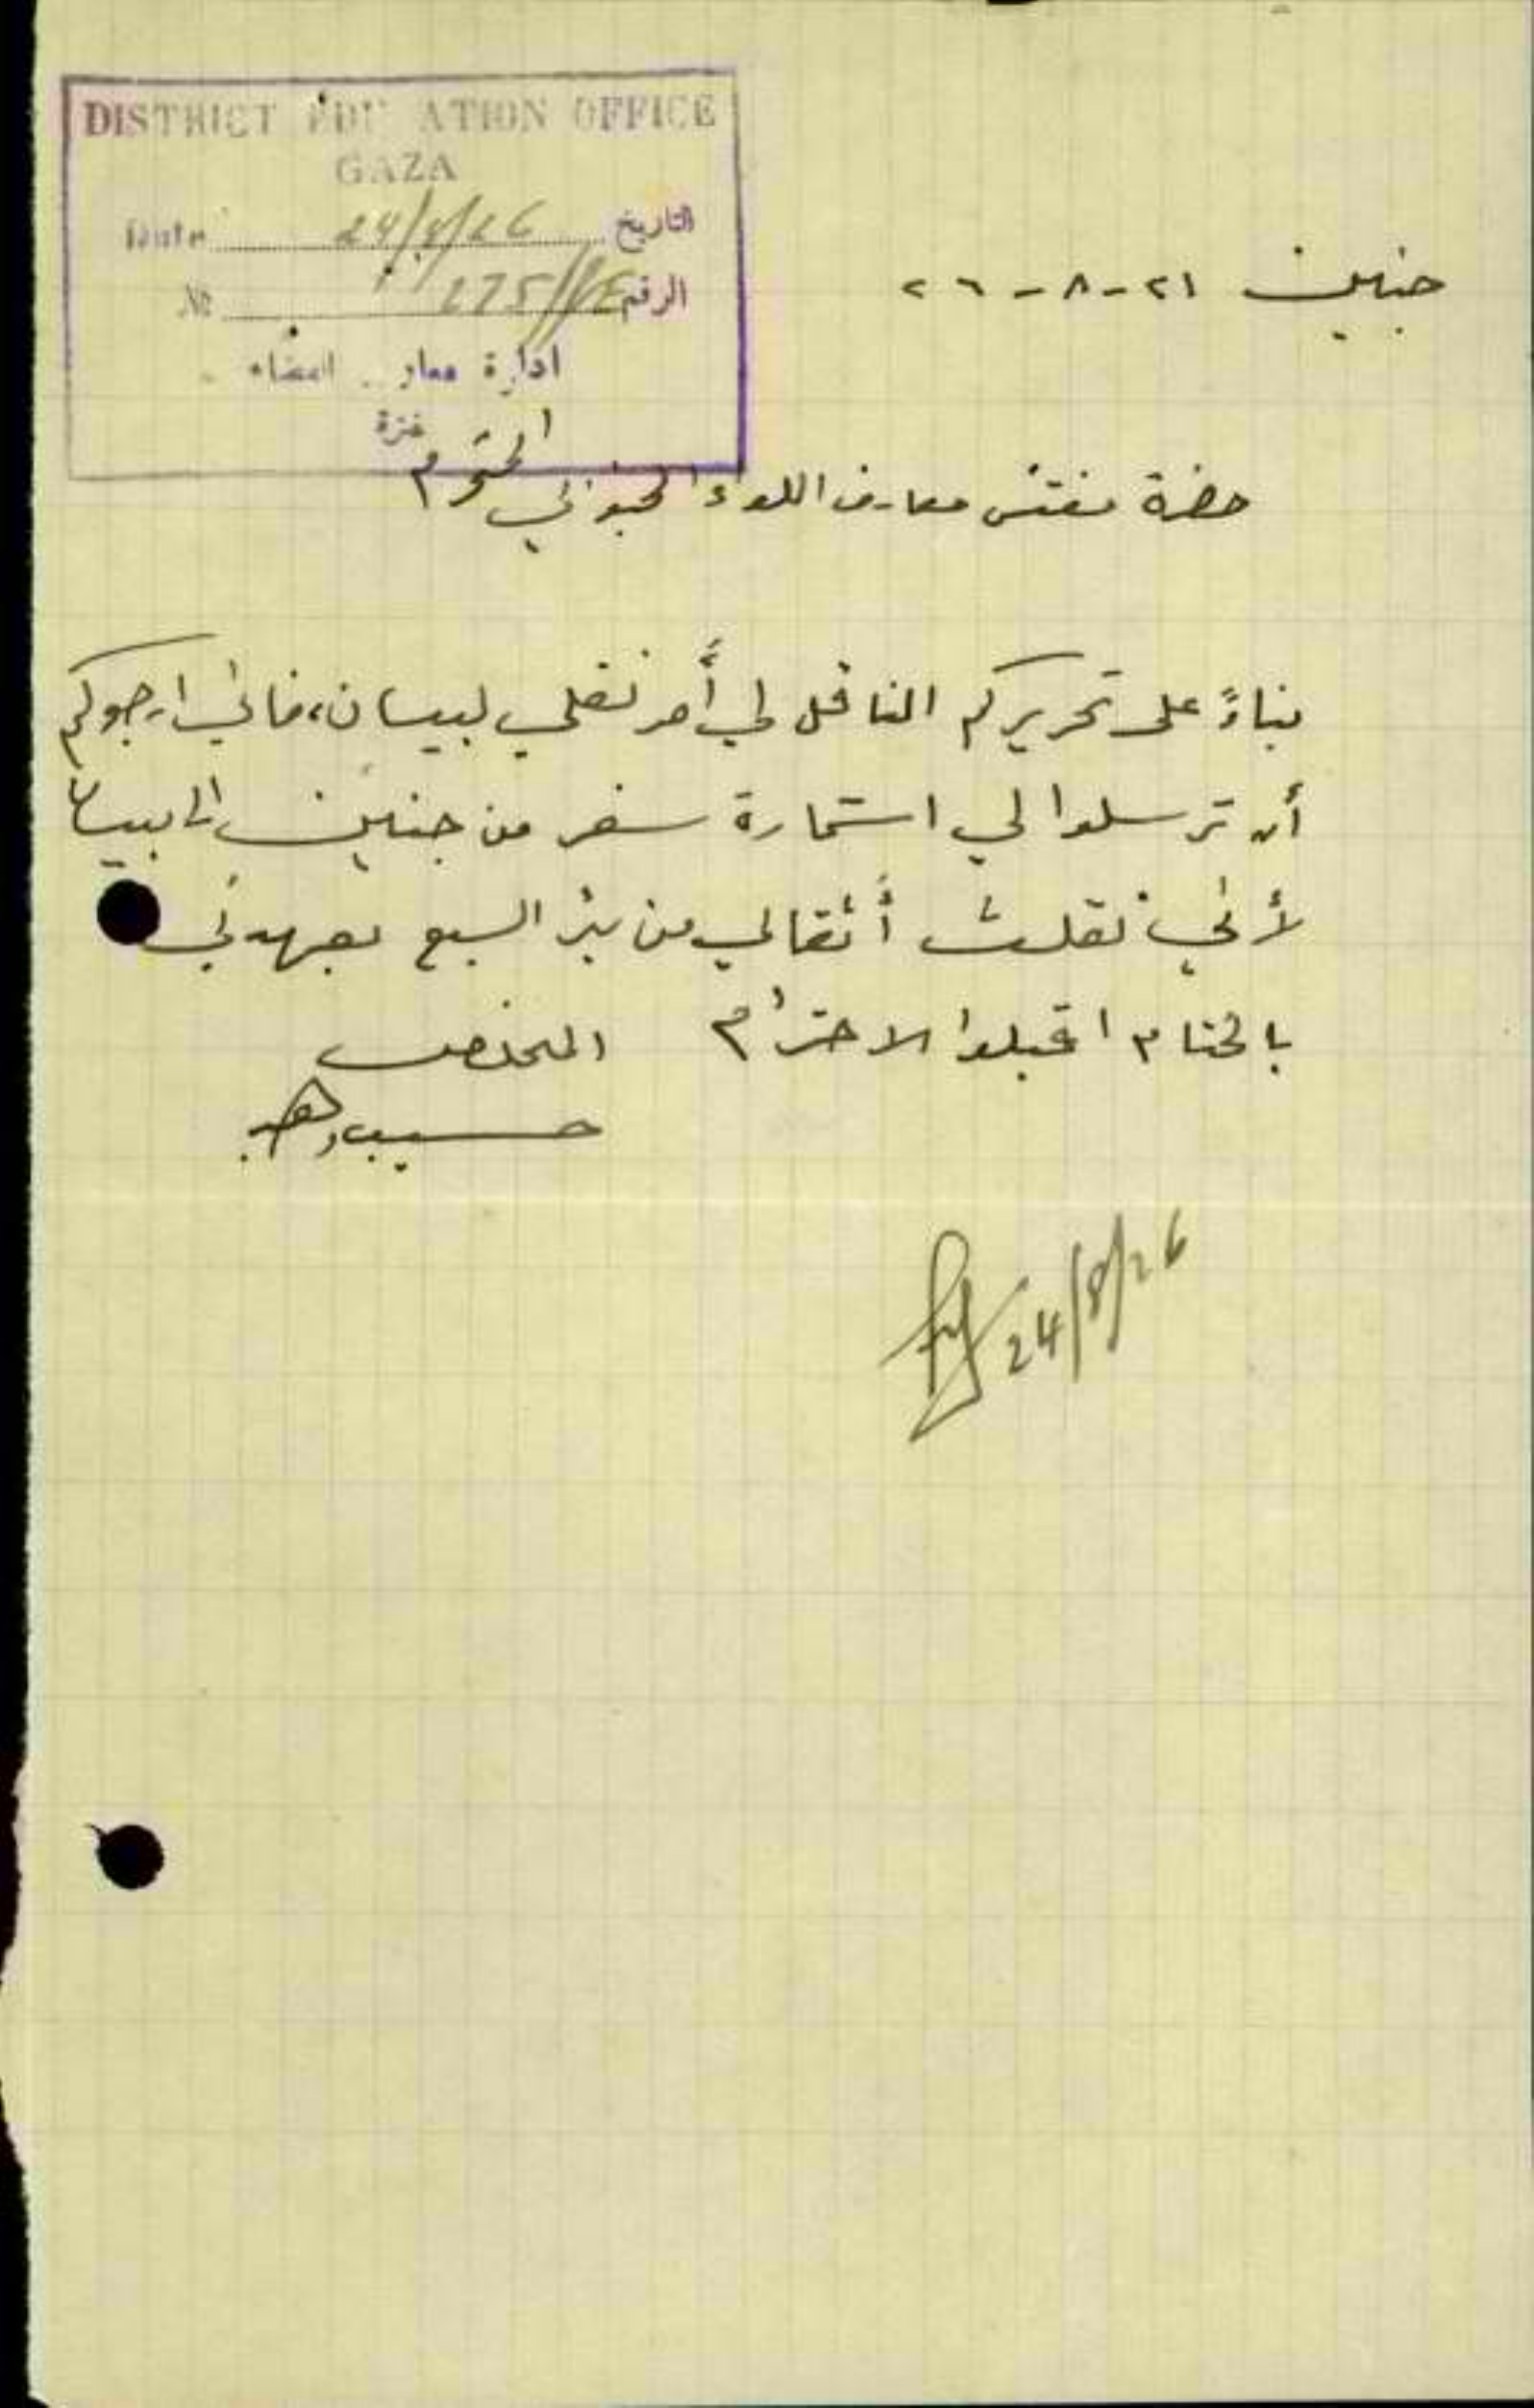 DISTRICT EDU ATION OFFICE
GAZA
Date 24/8/26 التاريخ
No 275 الرقم
ادارة معار
غزة
جنين ٢١-٨-٢٦
حضرة مفتش معارف اللواء الجنوبي المحترم
بناءً على تحريركم الناقل لي أمر نقلي لبيسان، فاني ارجوكم
أن ترسلوا لي استمارة سفر من جنين الى بيسان
لأني نقلت أثقالي من بئر السبع بعهدتي
بالختام اقبلوا الاحترام المخلص
حسيب
24/8/26